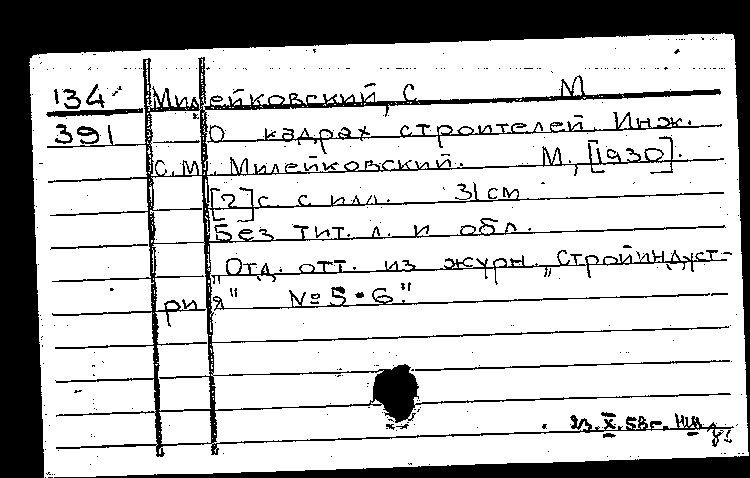 134 Милейковский, С М
391 О кадрах строителей. Инж.
С.М. Милейковский. М., [1930].
[2] с. с илл. 31 см
Без тит. л. и обл.
„Отд. отт. из журн. „Стройиндуст-
рия" № 5-6."
23.X.58г.